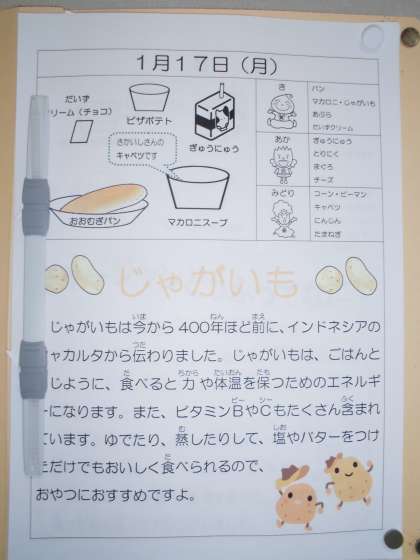 1月17日（月）
だいず
リーム（チョコ）
ピザポテト
ぎゅうにゅう
さかいしさんの
キャベツです
おおむぎパン
マカロニスープ
き
パン
マカロニ・じゃがいも
あぶら
だいずクリーム
あか
ぎゅうにゅう
とりにく
まぐろ
チーズ
みどり
コーン・ピーマン
キャベツ
にんじん
たまねぎ
じゃがいも
じゃがいもは今から400年ほど前に、インドネシアの
ャカルタから伝わりました。じゃがいもは、ごはんと
じように、食べると力や体温を保つためのエネルギ
ーになります。また、ビタミンBやCもたくさん含まれ
ています。ゆでたり、蒸したりして、塩やバターをつけ
ただけでもおいしく食べられるので、
おやつにおすすめですよ。